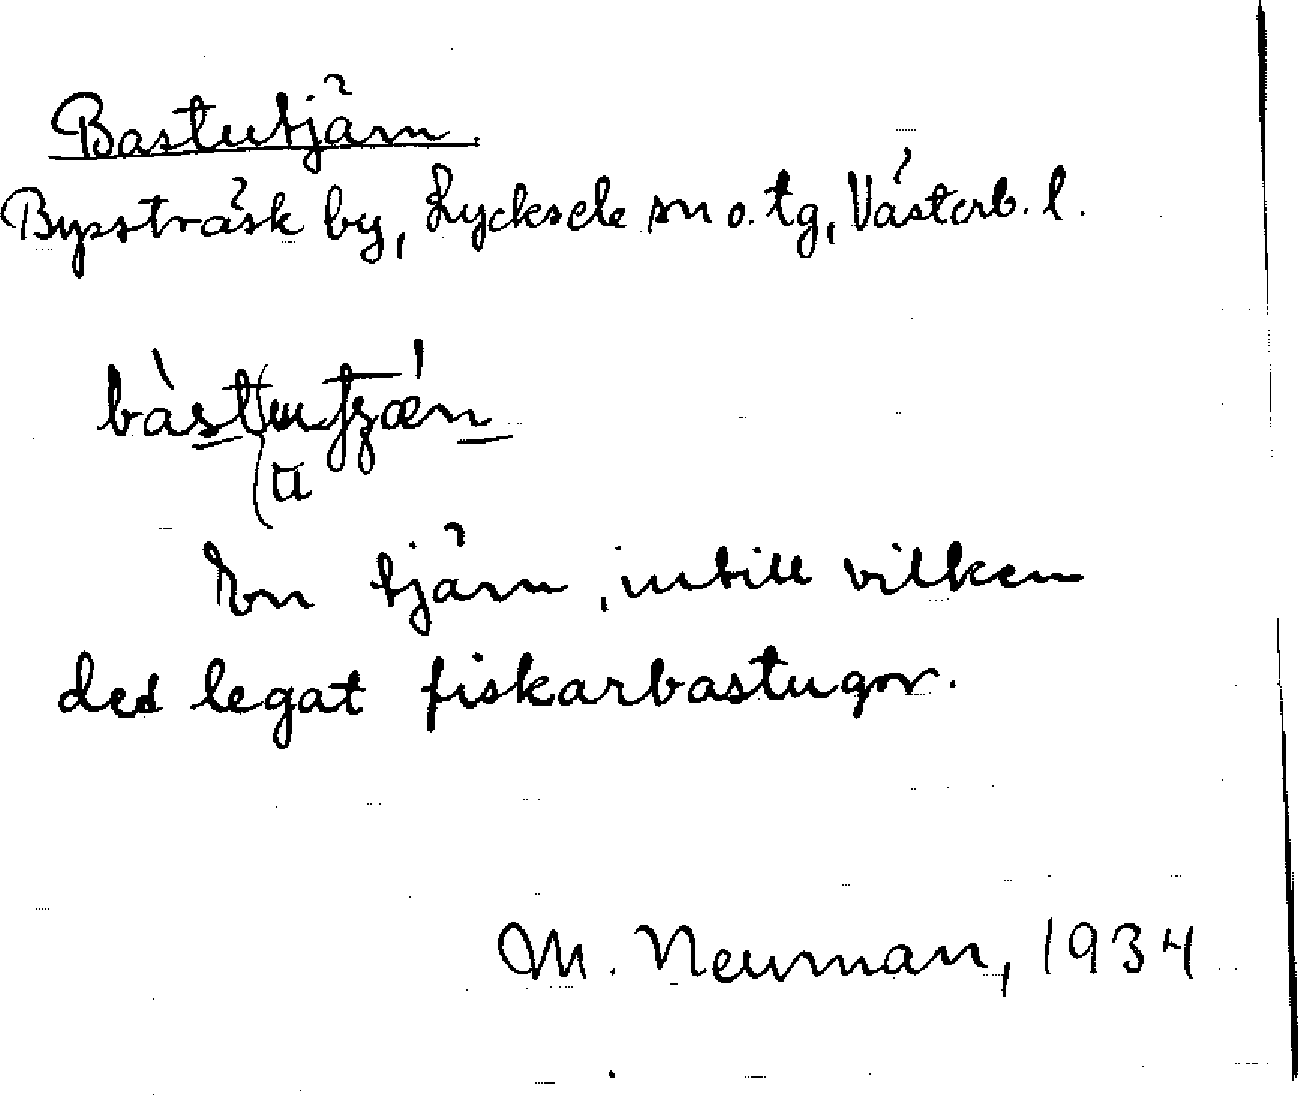 Bastutjärn.
Byssträsk by, Lycksele sn o. tg, Västerb. l.
En tjärn, intill vilken
det legat fiskarbastugor.
M. Neuman, 1934